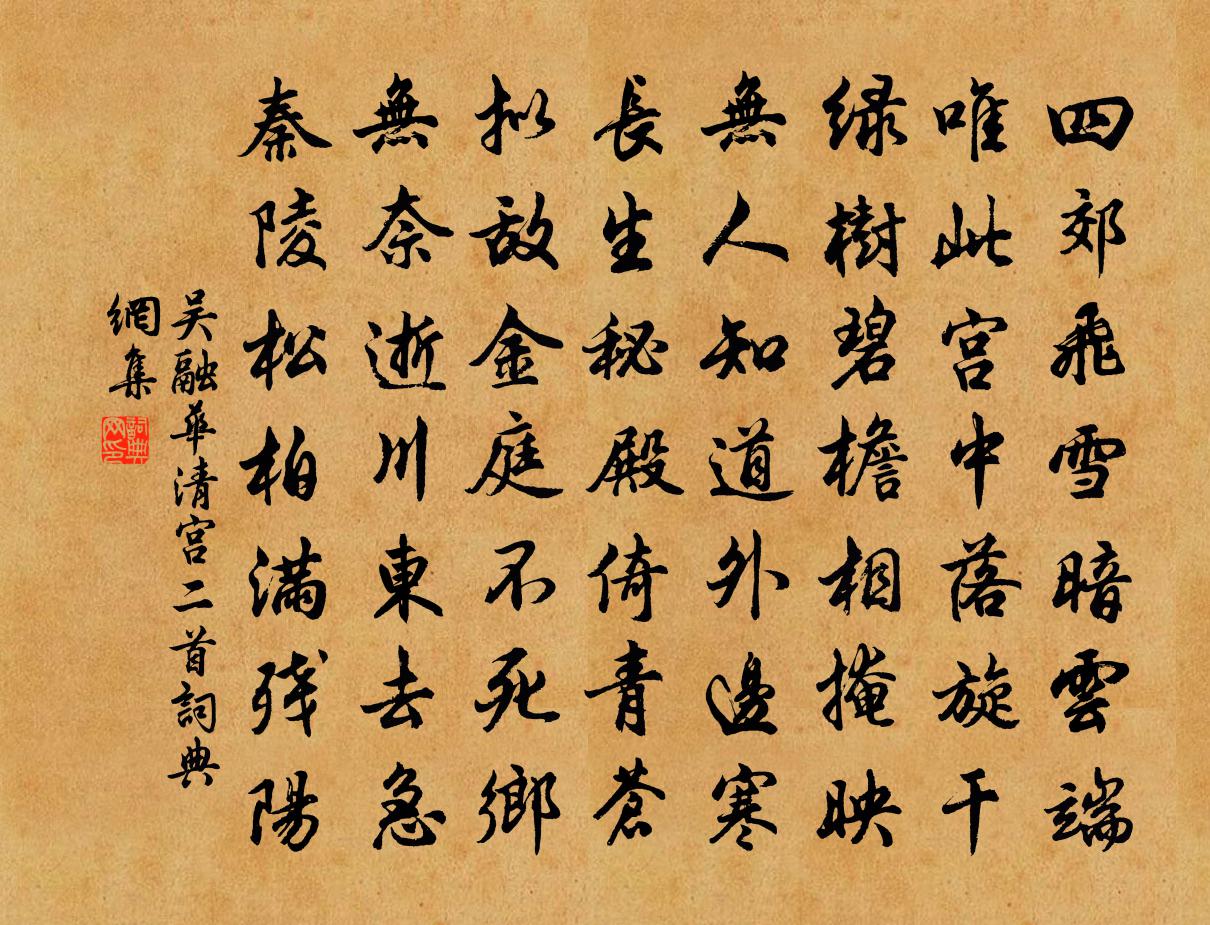 四郊飛雪暗雲端
唯此宫中落旋干
緑樹碧檐相掩映
無人知道外邊寒
長生秘殿倚青蒼
拟敌金庭不死鄉
無奈逝川東去急
秦陵松柏滿残陽
吴融華清宫二首詞典
網集
詞典
网印